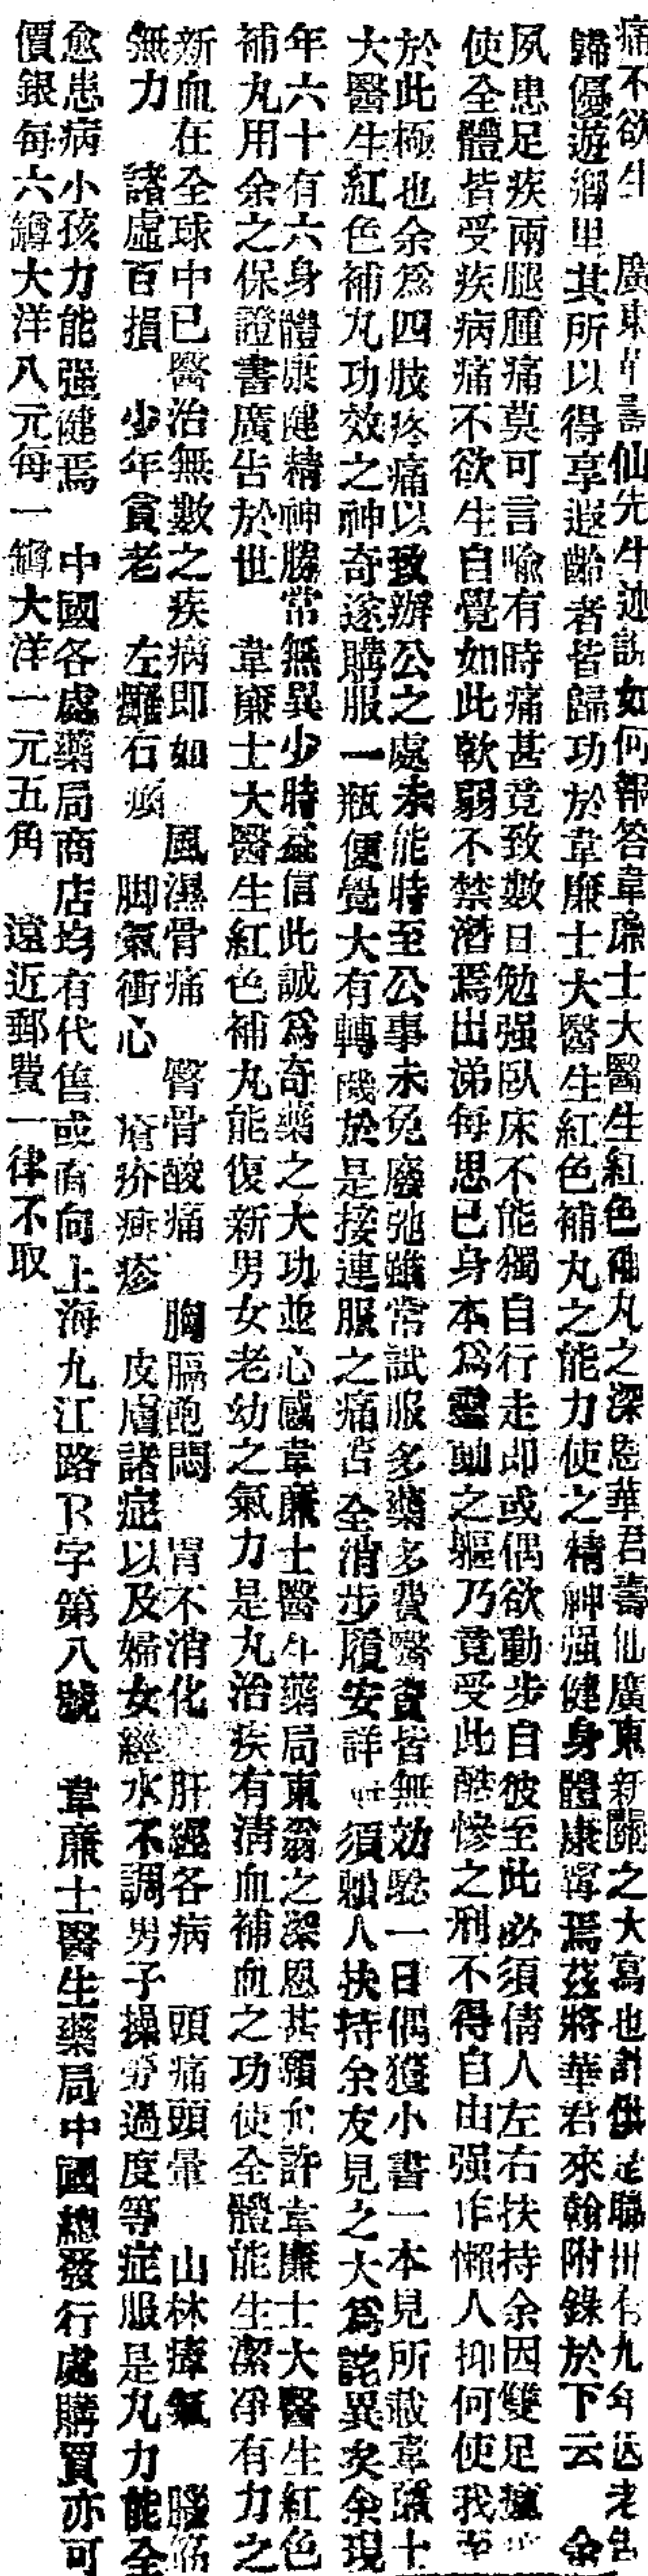 痛不欲生　廣東華壽仙先生述說如何報答韋廉士大醫生紅色補丸之深恩華君壽仙廣東新關之大寫也計供是職卅有九年迄老告
歸優遊鄉里其所以得享遐齡者皆歸功於韋廉士大醫生紅色補丸之能力使之精神强健身體康寧焉茲將華君來翰附錄於下云　余
夙患足疾兩腿腫痛莫可言喩有時痛甚竟致數日勉强臥床不能獨自行走即或偶欲動步自彼至此必須倩人左右扶持余因雙足
使全體皆受疾病痛不欲生自覺如此軟弱不禁潸焉出涕每思已身本爲靈動之軀乃竟受此酷慘之刑不得自由强作懶人抑何使我至
於此極也余爲四肢疼痛以致辦公之處未能時至公事未免廢弛雖常試服多藥多費醫資皆無効驗一日偶獲小書一本見所載韋廉士
大醫生紅色補丸功效之神奇遂購服一瓶便覺大有轉機於是接連服之痛苦全消步履安詳 須賴人扶持余友見之大爲詫異矣余現
年六十有六身體康健精神勝常無異少時益信此誠爲奇藥之大功並心感韋廉士醫生藥局東翁之深恩甚願允許韋廉士大醫生紅色
補丸用余之保證書廣告於世　韋廉士大醫生紅色補丸能復新男女老幼之氣力是丸治疾有清血補血之功使全體能生潔淨有力之
新血在全球中已醫治無數之疾病即如　風濕骨痛　臀骨酸痛　胸膈飽悶　胃不消化　肝經各病　頭痛頭暈　山林瘴氣　腦筋
無力　諸虛百損　少年衰老　左癱右瘓　脚氣衝心　瘡疥疹　皮膚諸症以及婦女經水不調男子操勞過度等症服是丸力能全
愈患病小孩力能强健焉　中國各處藥局商店均有代售或直向上海九江路B字第八號　韋廉士醫生藥局中國總發行處購買亦可
價銀每六罇大洋八元每一罇大洋一元五角　遠近郵費一律不取